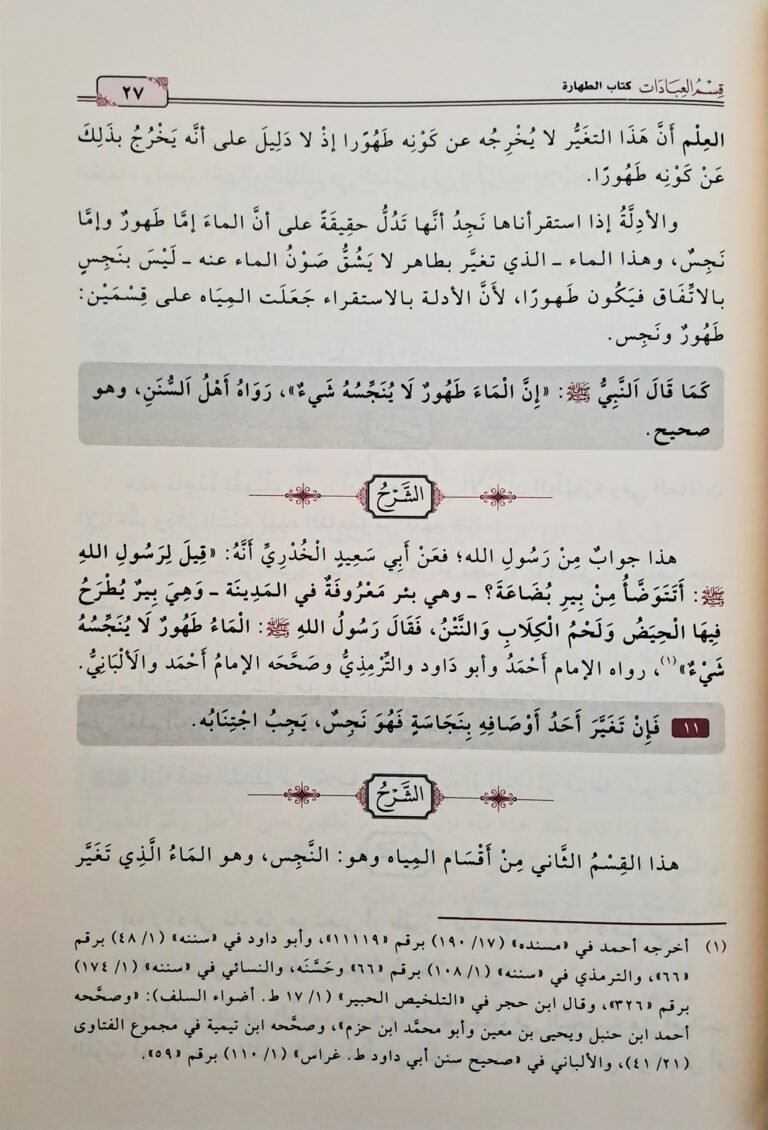 قِسْمُ العِبَادَات كتاب الطهارة
٢٧
العِلْم أَنَّ هَذَا التغَيُّر لا يُخْرِجُه عن كَوْنِه طَهُوْرًا إذْ لا دَلِيلَ على أنَّه يَخْرُجُ بذَلِكَ
عَنْ كَوْنِه طَهُورًا.
والأدِلَّةُ إذا استقرأناها نَجِدُ أنَّها تَدُلُّ حقِيقَةً على أنَّ الماءَ إمَّا طَهورٌ وإمَّا
نَجِسٌ، وهذا الماء ـ الذي تغيَّر بطاهر لا يَشُقُّ صَوْنُ الماء عنه ـ لَيْسَ بنَجِسٍ
بالاتِّفَاق فيَكُون طَهورًا، لأنَّ الأدلة بالاستقراء جَعَلَت المِيَاه على قِسْمَيْن:
طَهُورٌ ونَجِس.
كَمَا قَالَ اَلنَّبِيُّ ﷺ: «إِنَّ الْمَاءَ طَهُورٌ لَا يُنَجِّسُهُ شَيءٌ»، رَوَاهُ أَهْلُ اَلسُّنَنِ، وهو
صحيح.
الشَّرْحُ
هذا جوابٌ مِنْ رَسُولِ الله؛ فعَنْ أَبِي سَعِيدٍ الْخُدْرِيِّ أَنَّهُ: «قِيلَ لِرَسُولِ اللهِ
ﷺ: أَتَتَوَضَّأُ مِنْ بِيرِ بُضَاعَةَ؟ ـ وهي بئر مَعْرُوفَةٌ في المَدِينَة ـ وَهِيَ بِيرٌ يُطْرَحُ
فِيهَا الْحِيَضُ وَلَحْمُ الْكِلَابِ وَالنَّتْنُ، فَقَالَ رَسُولُ اللهِ ﷺ: الْمَاءُ طَهُورٌ لَا يُنَجِّسُهُ
شَيْءٌ»(١)، رواه الإمام أَحْمَدُ وأبو دَاود والتِّرْمِذِيُّ وصَحَّحَه الإمامُ أَحْمَد والألْبَانِيُّ.
١١ فَإِنْ تَغَيَّرَ أَحَدُ أَوْصَافِهِ بِنَجَاسَةٍ فَهُوَ نَجِسٌ، يَجِبُ اجْتِنَابُه.
الشَّرْحُ
هذا القِسْمُ الثَّاني مِنْ أَقْسَام المِياه وهو: النَّجِس، وهو المَاءُ الَّذِي تَغَيَّر
(١) أخرجه أحمد في «مسنده» (١٧/ ١٩٠) برقم «١١١١٩»، وأبو داود في «سننه» (١/ ٤٨) برقم
«٦٦»، والترمذي في «سننه» (١/ ١٠٨) برقم «٦٦» وحَسَّنَه، والنسائي في «سننه» (١/ ١٧٤)
برقم «٣٢٦»، وقال ابن حجر في «التلخيص الحبير» (١/ ١٧ ط. أضواء السلف): «وصحَّحه
أحمد ابن حنبل ويحيى بن معين وأبو محمَّد ابن حزم»، وصحَّحه ابن تيمية في مجموع الفتاوى
(٢١/ ٤١)، والألباني في «صحيح سنن أبي داود ط. غراس» (١/ ١١٠) برقم «٥٩».